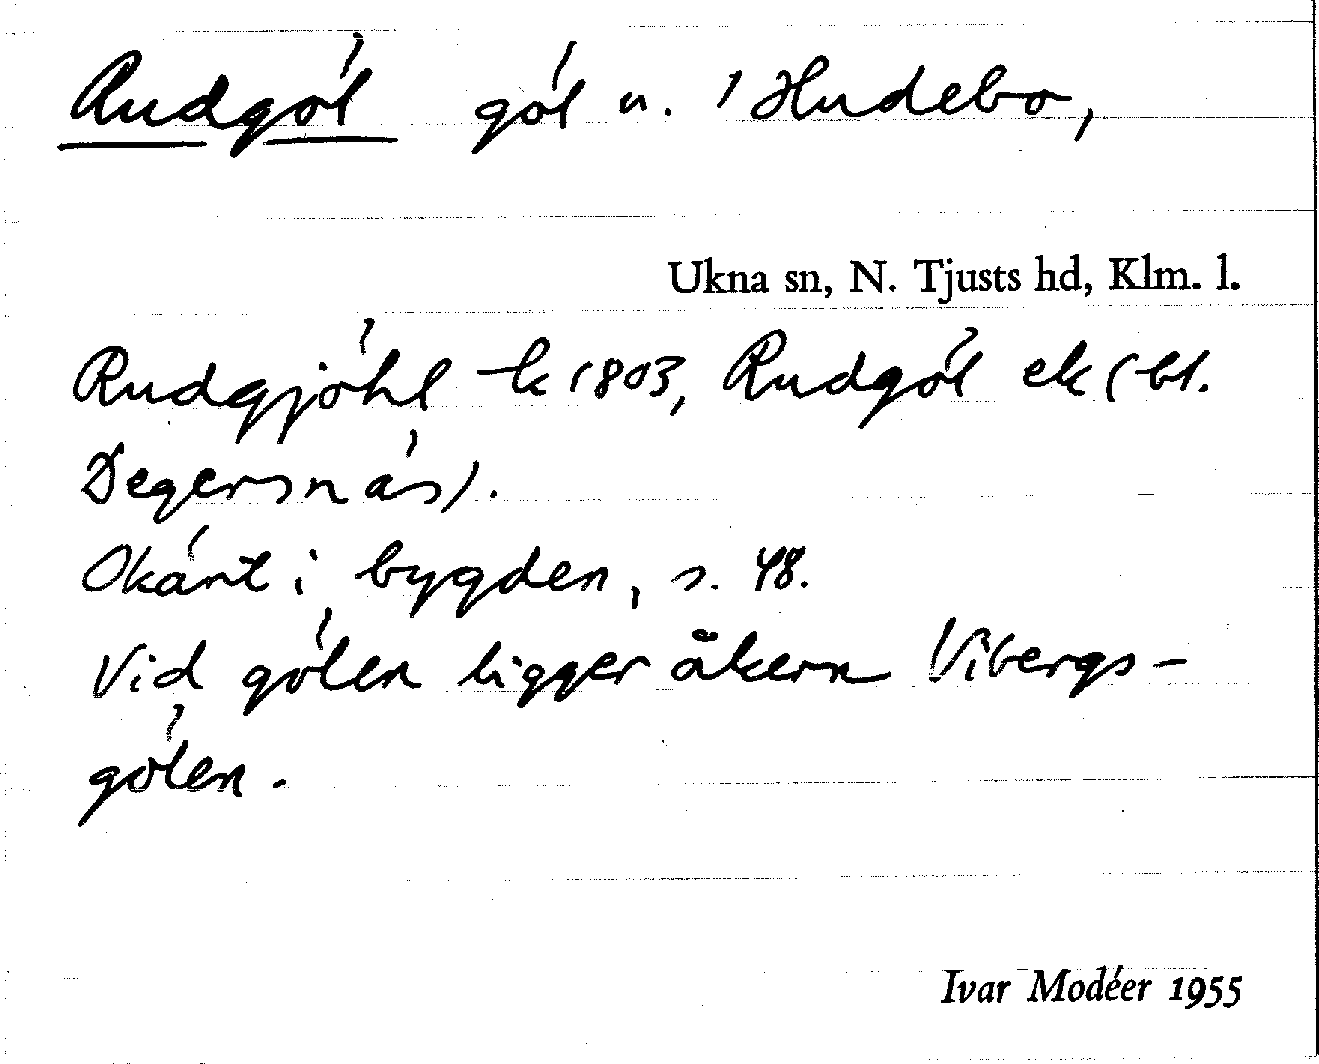 Rudgöl göl u. 1 Hudebo,
Ukna sn, N. Tjusts hd, Klm. l.
Rudgjöhl -k 1803, Rudgöl ek (bl.
Degersnäs).
Okänt i bygden, s. 48.
Vid gölen ligger åkern Vibergs-
gölen.
Ivar Modéer 1955